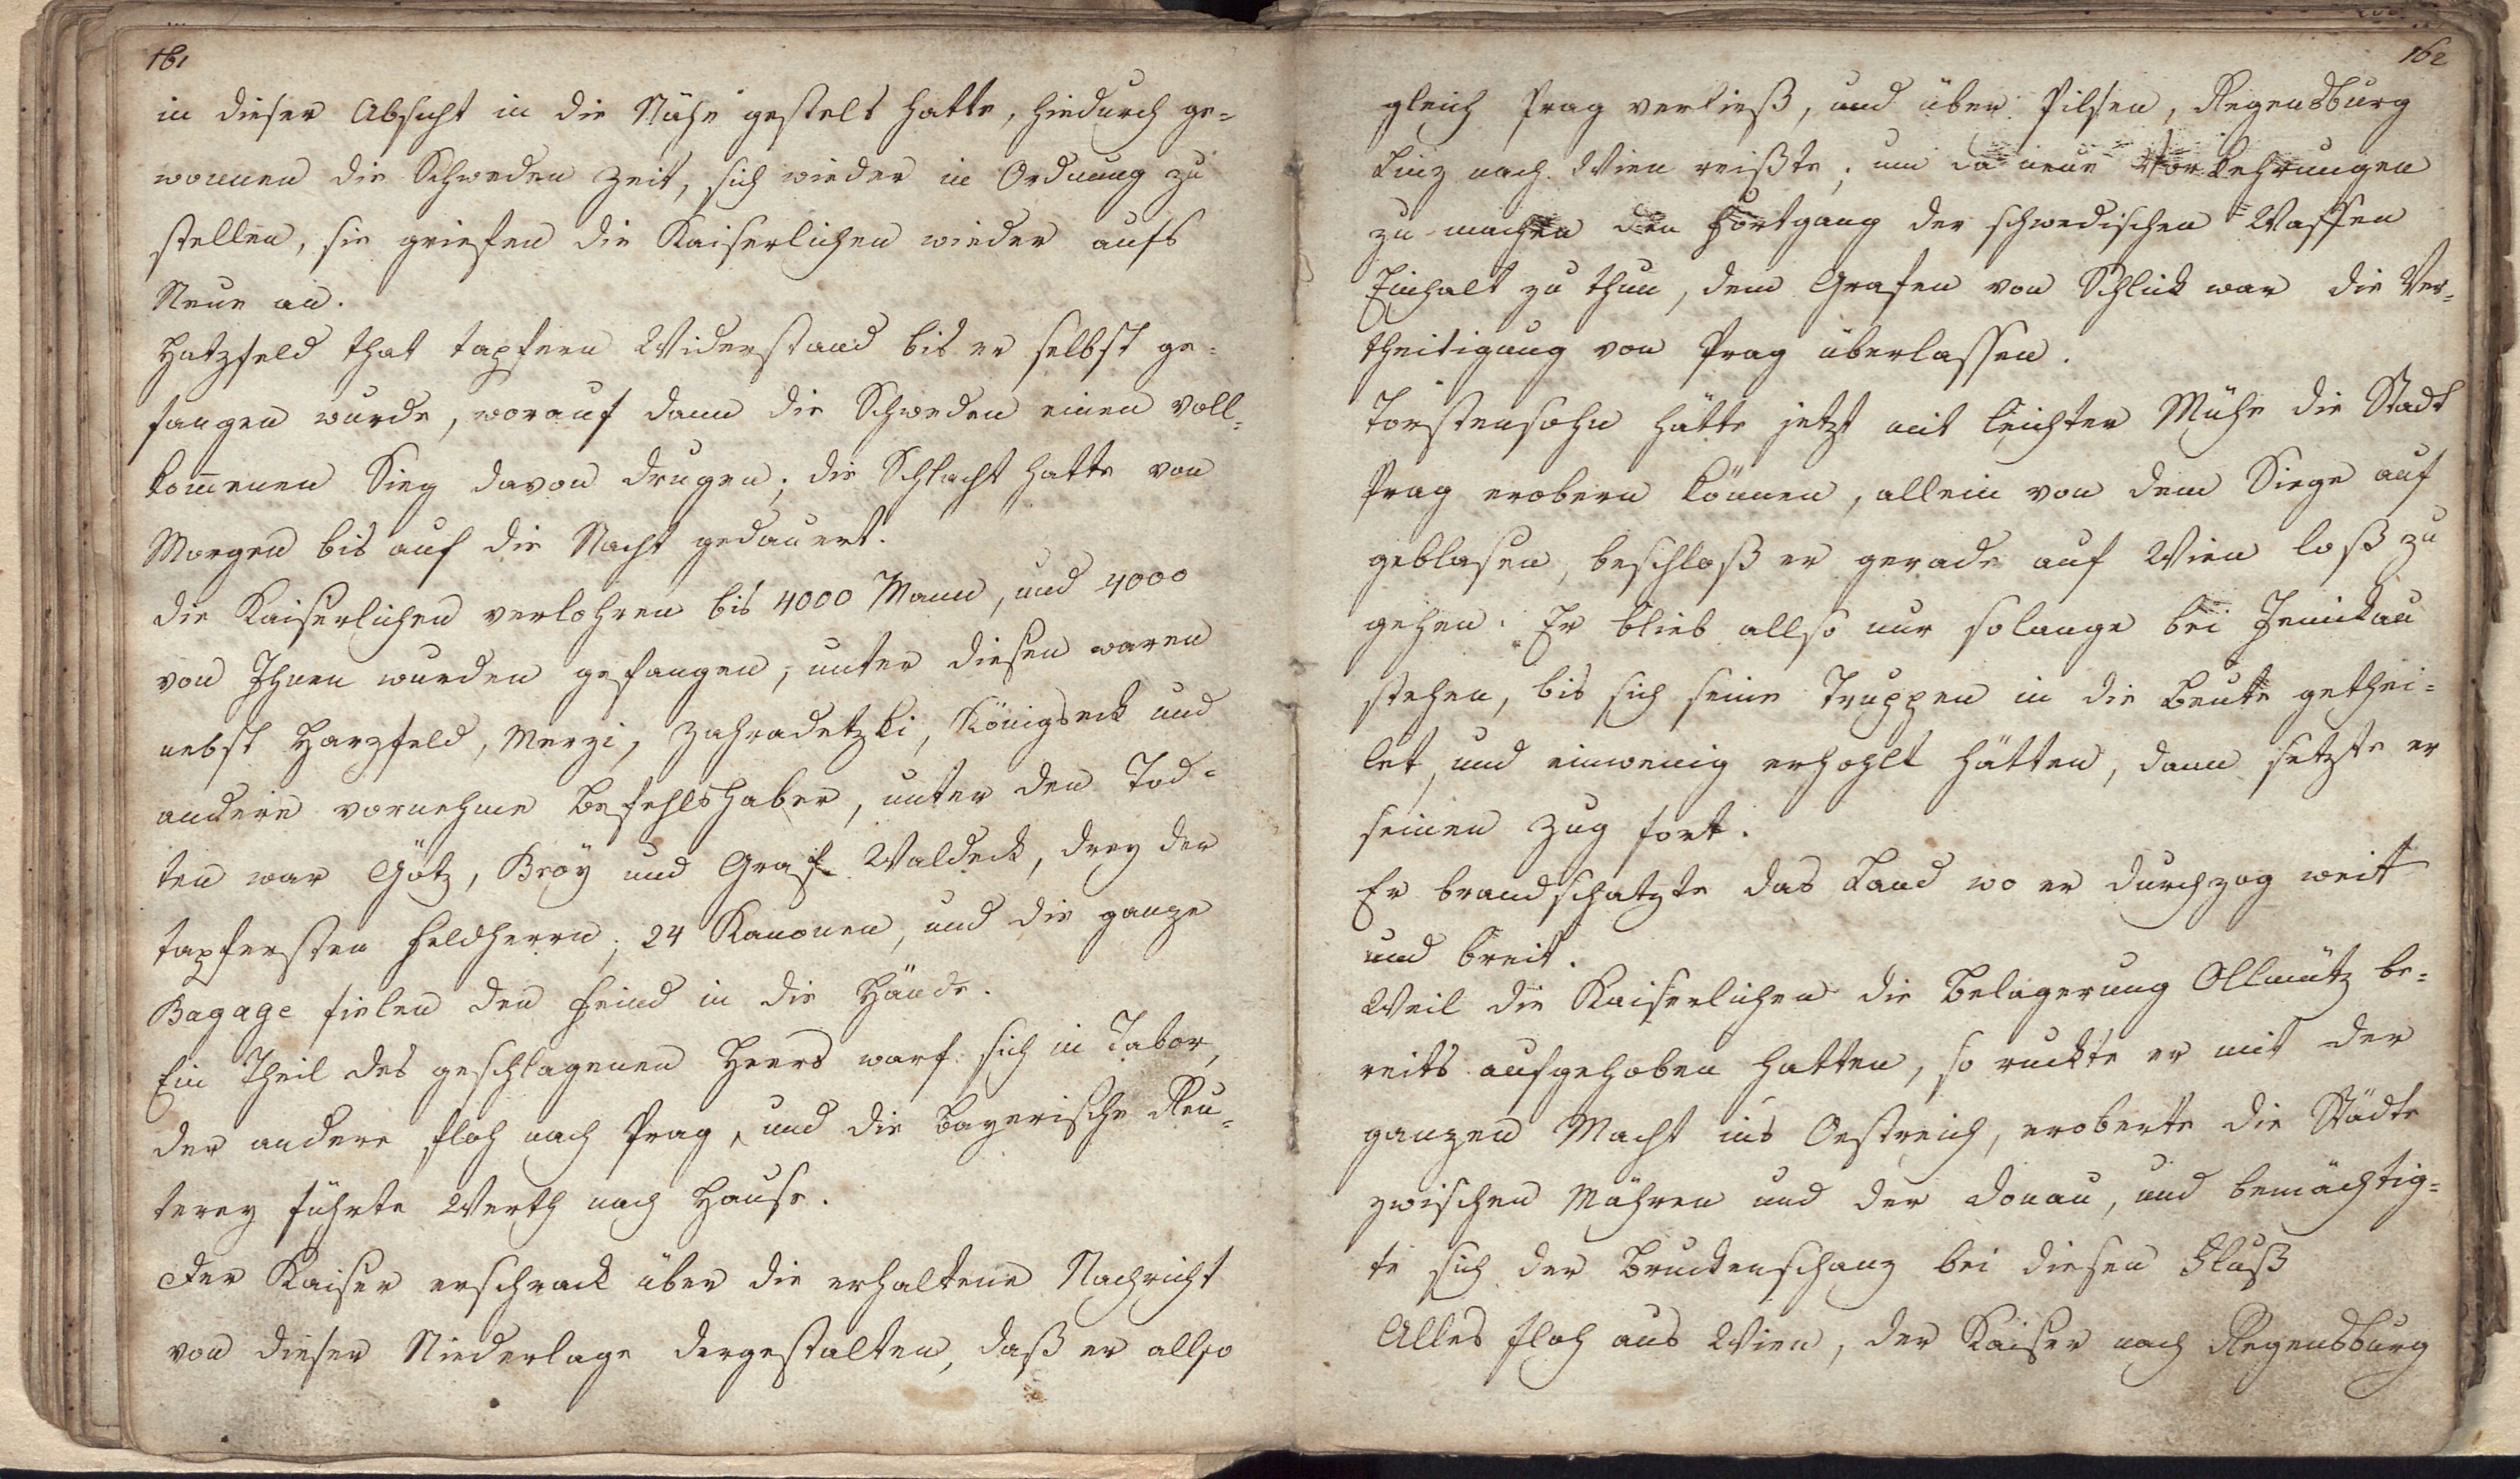 161
in dieser Absicht in die Nähe gestelt hatte, hiedurch ge=
wonnen die Schweden Zeit, sich wieder in Ordnung zu
stellen, sie griefen die Kaiserlichen wieder aufs
Neue an.
Hatzfeld that tapfern Widerstand bis er selbst ge=
fangen wurde, worauf dann die Schweden einen voll=
kom̅enen Sieg davon drugen; die Schlacht hatte von
Morgen bis auf die Nacht gedauert.
die Kaiserlichen verlohren bis 4000 Mann, und 4000
von Ihnen wurden gefangen, unter diesen waren
nebst Harzfeld, Merzi, Zahradetzki, Königseck und
andere vornehme Befehlshaber, unter den Tod=
ten war Götz, Broÿ und Graf Waldeck, drey der
tapfersten Feldherrn; 24 Kanonen, und die ganze
Bagage fielen den Feind in die Hände.
Ein Theil des geschlagenen Heers warf sich in Tabor,
der andere floh nach Prag, und die Bayerische Reu=
terey führte Werth nach Hause.
Der Kaiser erschrack über die erhaltene Nachricht
von dieser Niederlage dergestalten, daß er allso
162
gleich Prag verließ, und über Pilsen, Regensburg
Linz nach Wien reißte; um da neue Vorkehrungen
zu machen den Fortgang der schwedischen Waffen
Einhalt zu thun, dem Grafen von Schlick war die Ver=
theitigung von Prag überlassen.
Torstensohn hätte jetzt mit leichter Mühe die Stadt
Prag erobern können, allein von dem Siege auf
geblasen, beschloß er gerade auf Wien loß zu
gehen. Er blieb allso nur solange bei Jenikau
stehen, bis sich seine Truppen in die Beute gethei=
let, und einwenig erhohlt hätten, dann setzte er
seinen Zug fort.
Er brandschatzte das Land wo er durchzog weit
und breit.
Weil die Kaiserlichen die Belagerung Ollmütz be=
reits aufgehoben hatten, so ruckte er mit der
ganzen Macht ins Oestreich, eroberte die Städte
zwischen Mähren und der Donau, und bemächtig=
te sich der Bruckenschanz bei diesen Fluß
Alles floh aus Wien, der Kaiser nach Regensburg